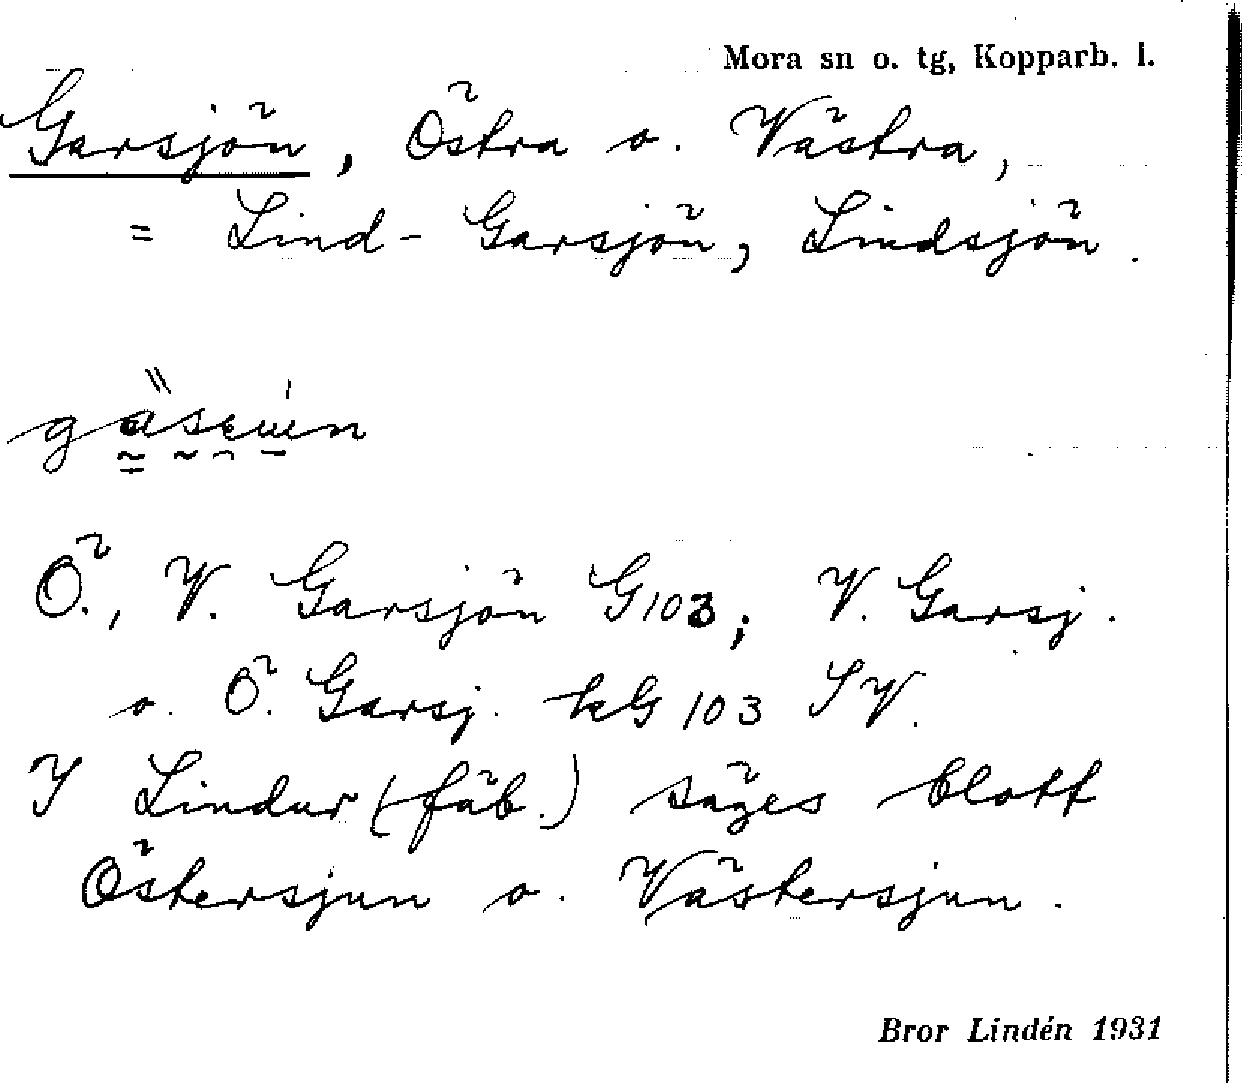 Mora sn o. tg, Kopparb. l.
Garsjön, Östra o. Västra,
= Lind-Garsjön, Lindsjön.
Ö., V. Garsjön G103; V. Garsj.
o. Ö. Garsj. kG 103 SV.
I Lindur (fäb.) säges blott
Östersjun o. Västersjun.
Bror Lindén 1931